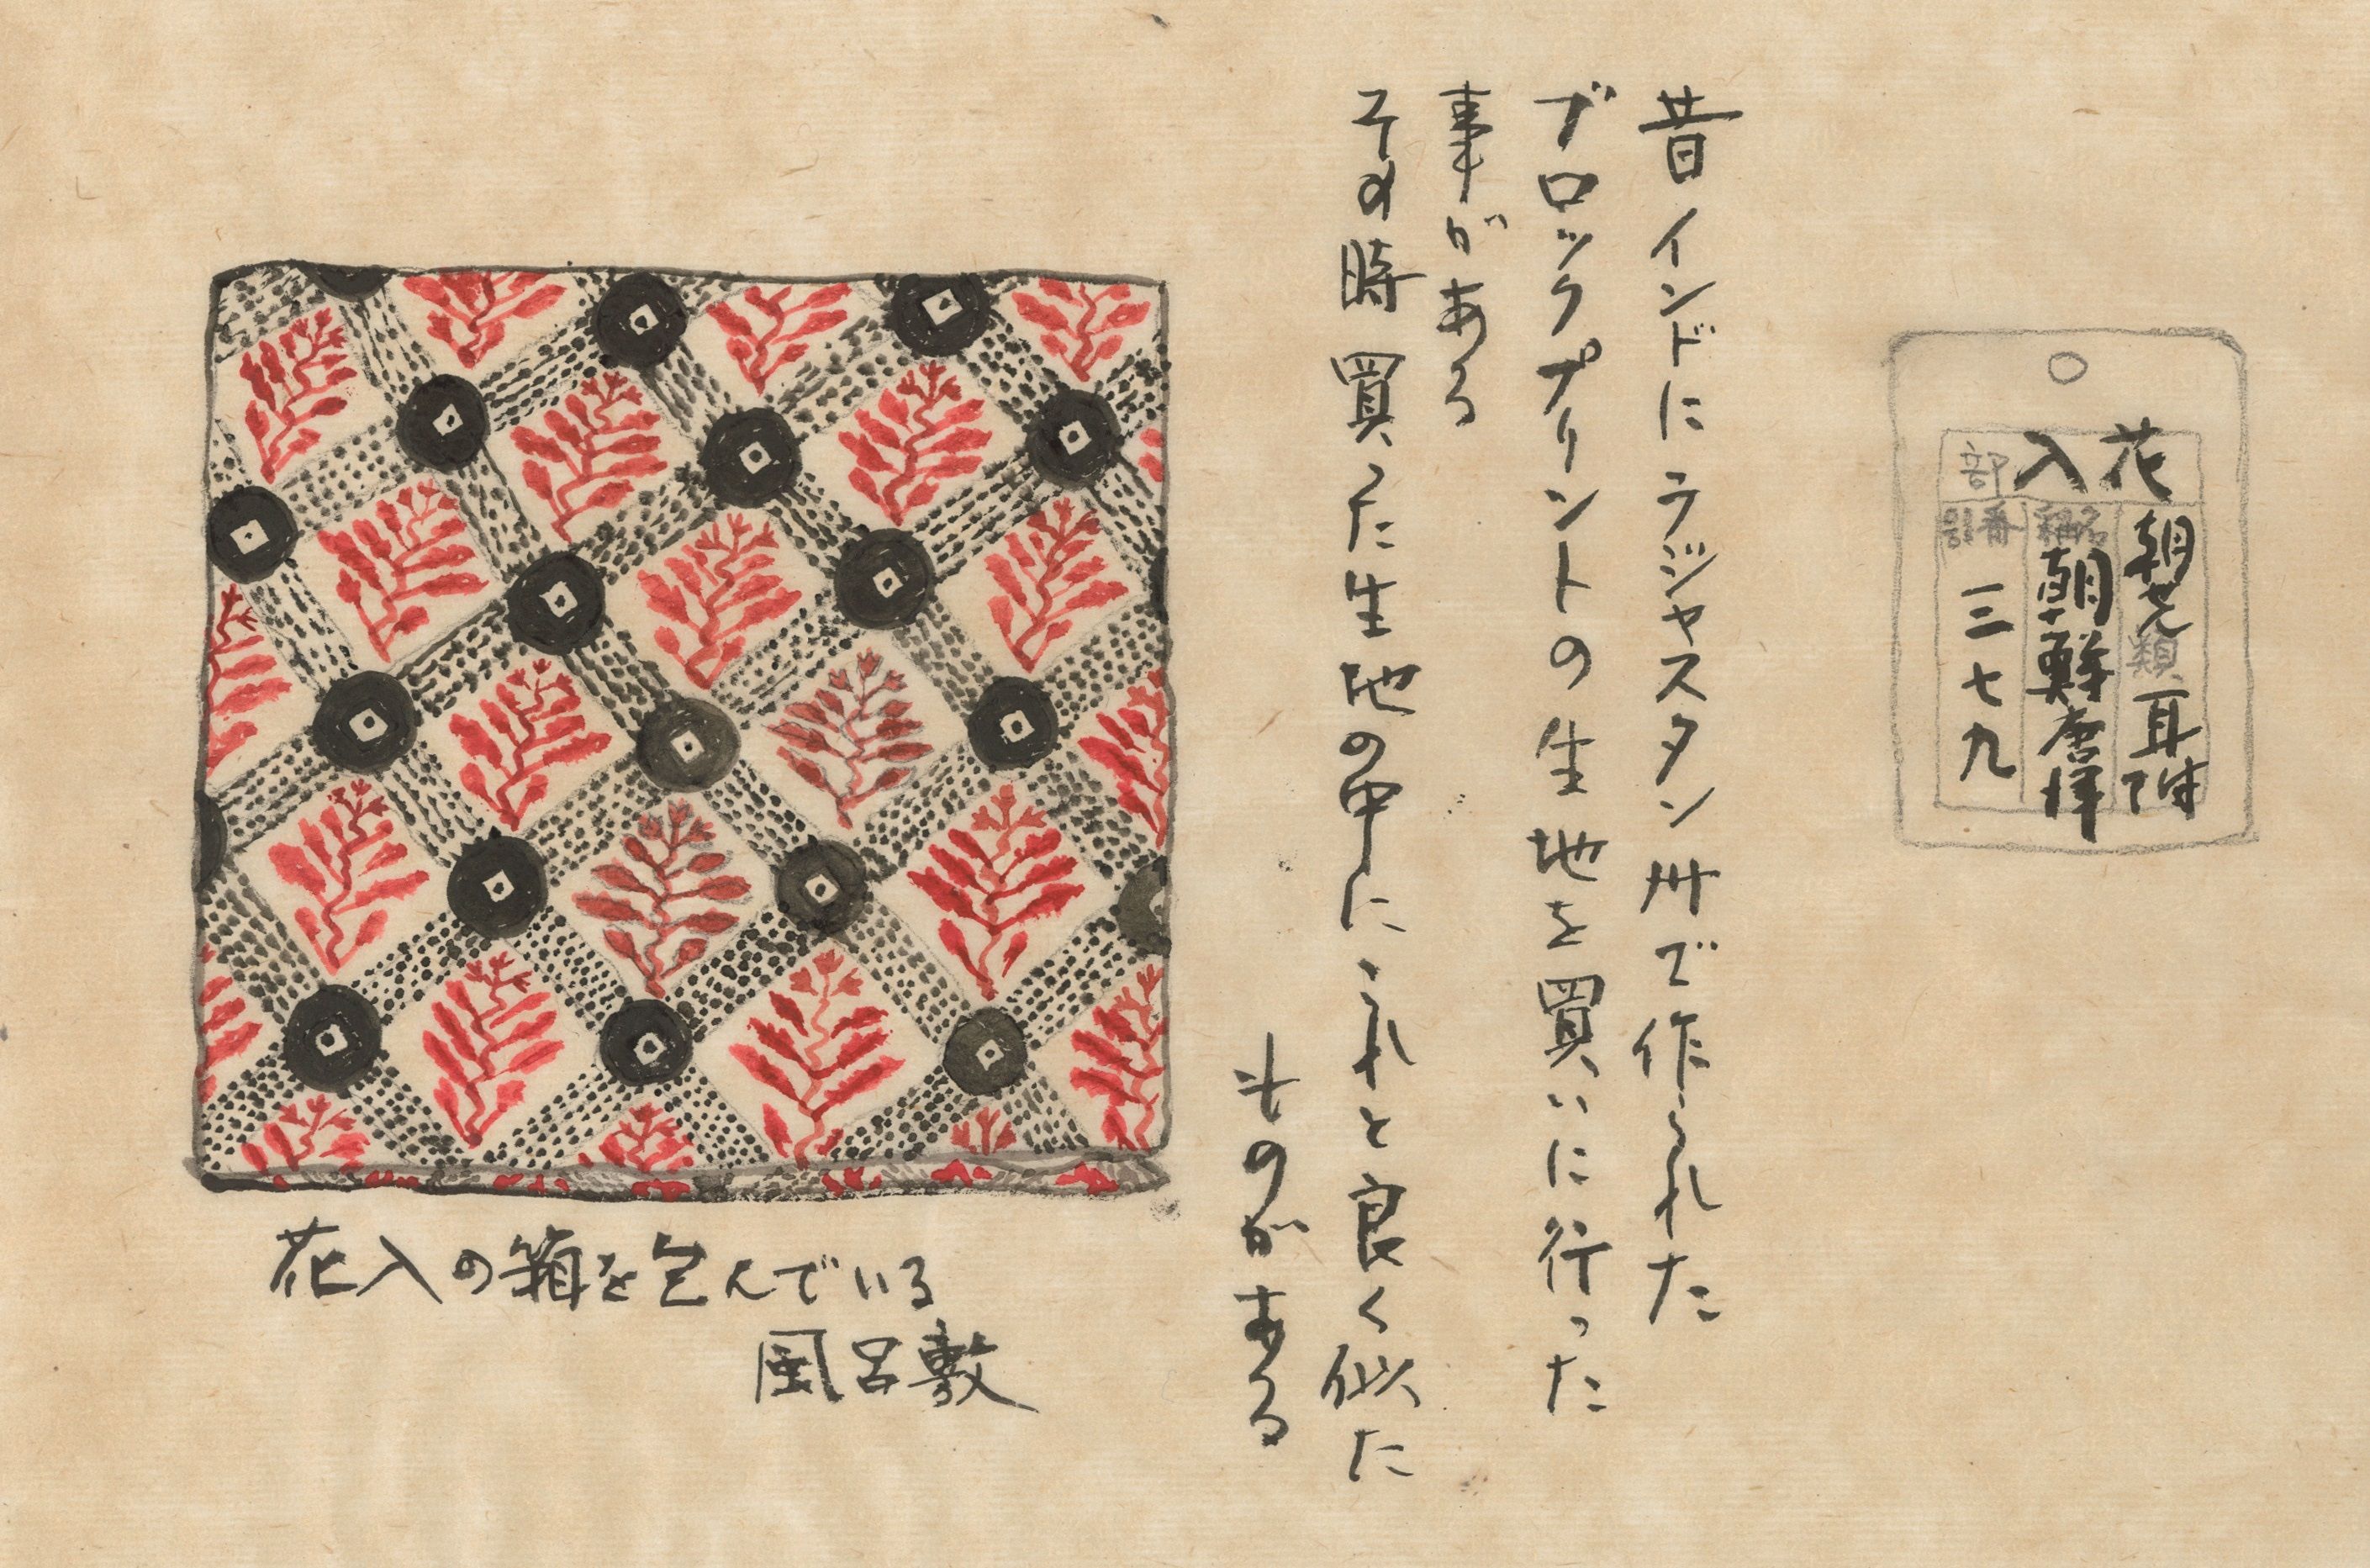 花入部
類 耳附
名称 朝鮮唐津
番号 三七九
昔インドにラジャスタン州で作られた
ブロックプリントの生地を買いに行った
事がある
その時買った生地の中にこれと良く似た
ものがある
花入の箱を包んでいる
風呂敷